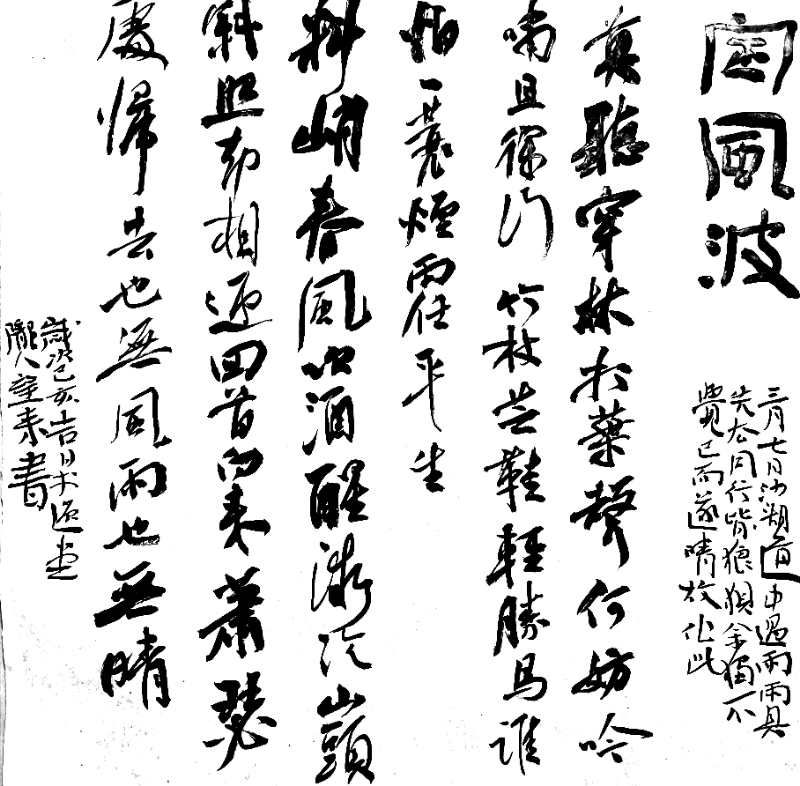 定風波
三月七日沙湖道中遇雨雨具
先去同行皆狼狽余獨不
覺已而遂晴故作此
莫聽穿林打葉聲何妨吟
嘯且徐行竹杖芒鞋輕勝馬誰
怕一蓑煙雨任平生
料峭春風吹酒醒微冷山頭
斜照却相迎回首向來蕭瑟
處歸去也無風雨也無晴
歲次己亥吉日
隴人書